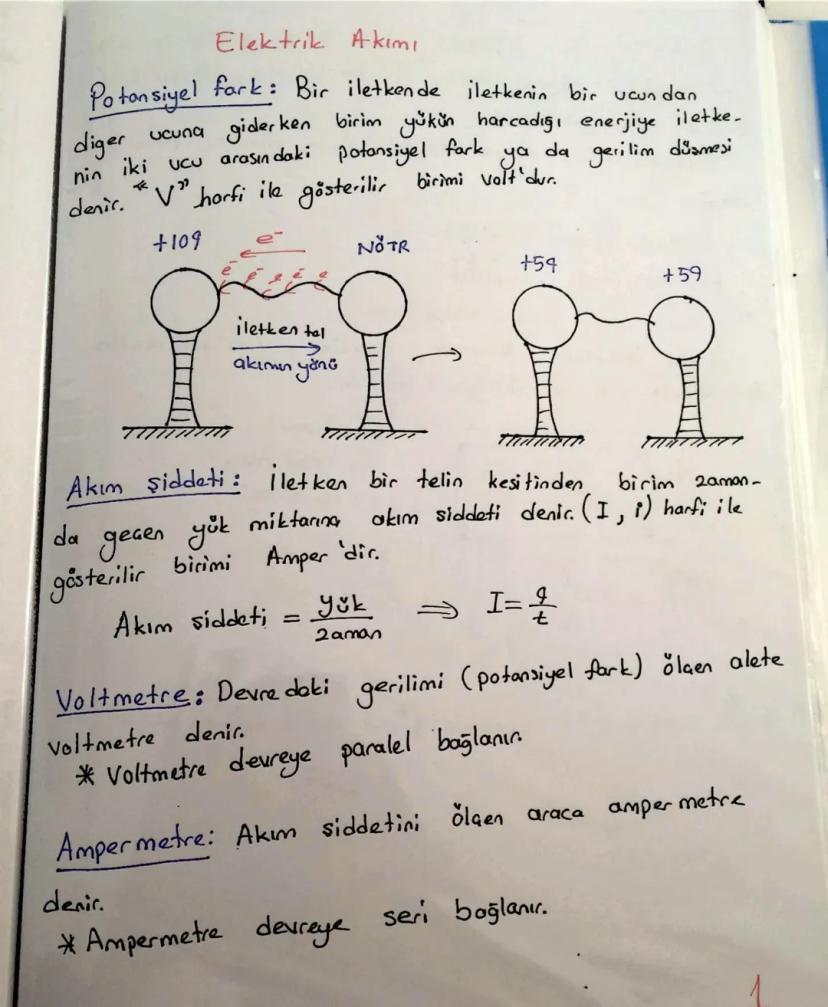 Elektrik Akımı
Potansiyel fark: Bir iletkende iletkenin bir ucundan
diger ucuna giderken birim yükün harcadığı enerjiye iletke-
nin iki ucu arasındaki potansiyel fark ya da gerilim düşmesi
denir. "V" harfi ile gösterilir birimi volt'dur.
+109 e⁻ NÖTR +59 +59
e⁻ e⁻ e e⁻ e
iletken tel
akımın yönü
Akım şiddeti: İletken bir telin kesitinden birim zaman-
da geçen yük miktarına akım şiddeti denir. (I, i) harfi ile
gösterilir birimi Amper'dir.
Akım şiddeti = yük / zaman ⇒ I = q / t
Voltmetre: Devredeki gerilimi (potansiyel fark) ölçen alete
voltmetre denir.
* Voltmetre devreye paralel bağlanır.
Ampermetre: Akım şiddetini ölçen araca ampermetre
denir.
* Ampermetre devreye seri bağlanır.
1